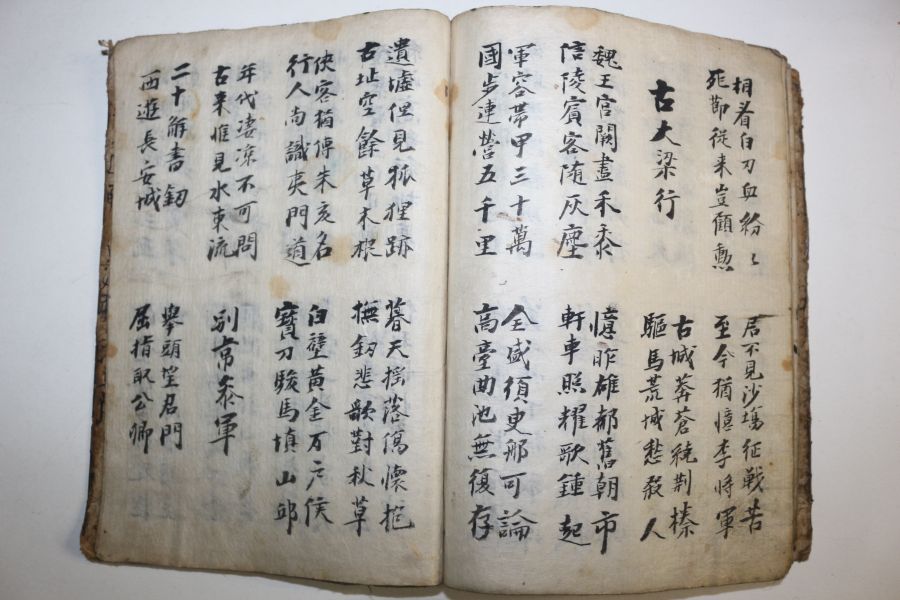 相看白刃血紛〻
死節從來豈顧勲
君不見沙塲征戰苦
至今猶憶李將軍
古大梁行
古城莽蒼繞荆榛
驅馬荒城愁殺人
魏王宮闕盡禾黍
信陵賓客隨灰塵
憶昨雄都舊朝市
軒車照耀歌鍾起
軍容帶甲三十萬
國步連營五千里
全盛須更那可論
高臺曲池無復存
遺墟但見狐狸跡
古址空餘草木根
暮天搖落傷懷抱
撫釼悲歌對秋草
俠客猶傳朱亥名
行人尚識夷門道
白壁黃金万户侯
寶刀駿馬填山邱
年代凄凉不可問
古來惟見水東流
別常叅軍
二十解書釼
西遊長安城
舉頭望君門
屈指取公卿